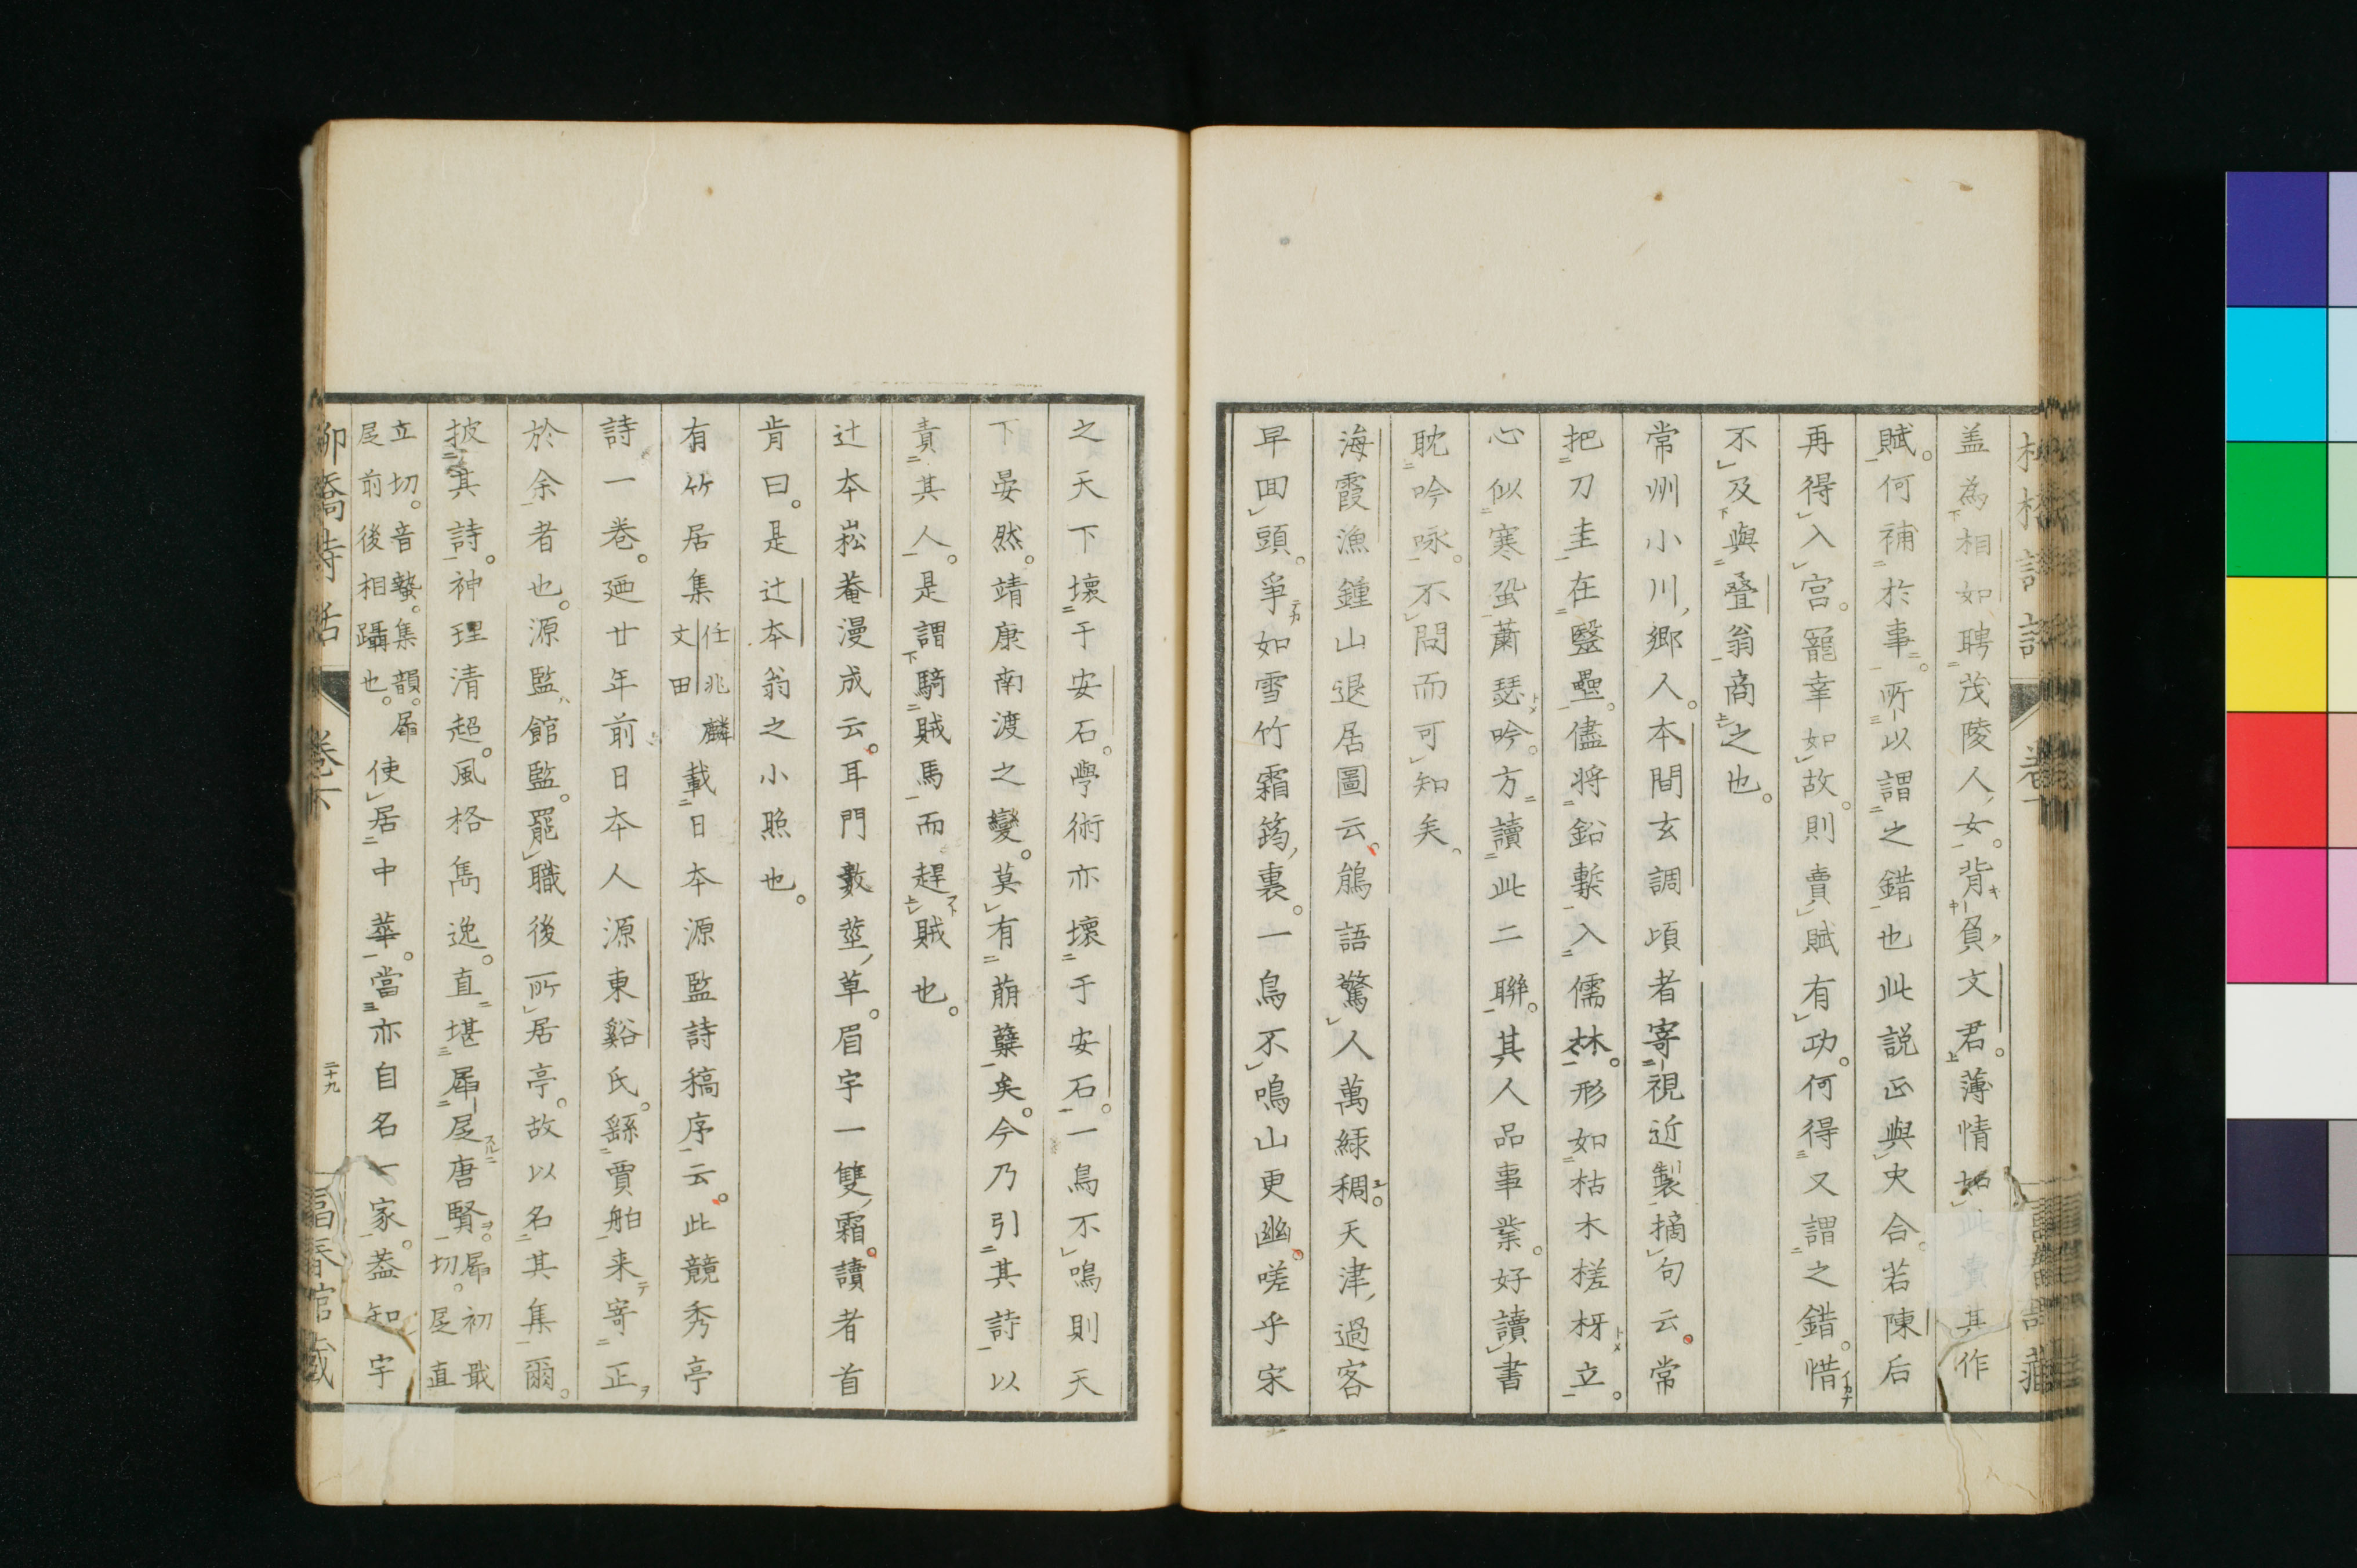 盖為相如聘茂陵人女。背負文君。薄情如其作
賦。何補於事。所以謂之錯也此説正與史合。若陳后
再得入宮。寵幸如故。則賣賦有功。何得又謂之錯。惜
不及與疊翁商之也。
常州小川郷人。本間玄調頃者寄視近製摘句云。常
把刀圭在毉壘。儘將鉛槧入儒林。形如枯木槎枒立。
心似寒蛩蕭瑟吟。方讀此二聯。其人品事業。好讀書
耽吟咏。不問而可知矣。
海霞漁鍾山退居圖云。鵑語驚人萬綠稠。天津過客
早回頭。爭如雪竹霜筠裏。一鳥不鳴山更幽。嗟乎宋
之天下壞于安石。學術亦壞于安石。一鳥不鳴則天
下晏然。靖康南渡之變。莫有萠蘖矣。今乃引其詩以
責其人。是謂騎賊馬而趕賊也。
辻本崧菴漫成云。耳門數莖草。眉宇一雙霜。讀者首
肯曰。是辻本翁之小照也。
有竹居集任兆麟文田載日本源監詩稿序云。此競秀亭
詩一卷。廼廿年前日本人源東谿氏。繇賈舶来寄正
於余者也。源監館監。罷職後所居亭。故以名其集爾。
披其詩。神理清超。風格雋逸。直堪屚㞋唐賢。屚初戢切。㞋直
立切。音蟄。集韻。屚㞋前後相躡也。使居中華。當亦自名一家。蓋知宇
柳橋詩話
卷下
二十九